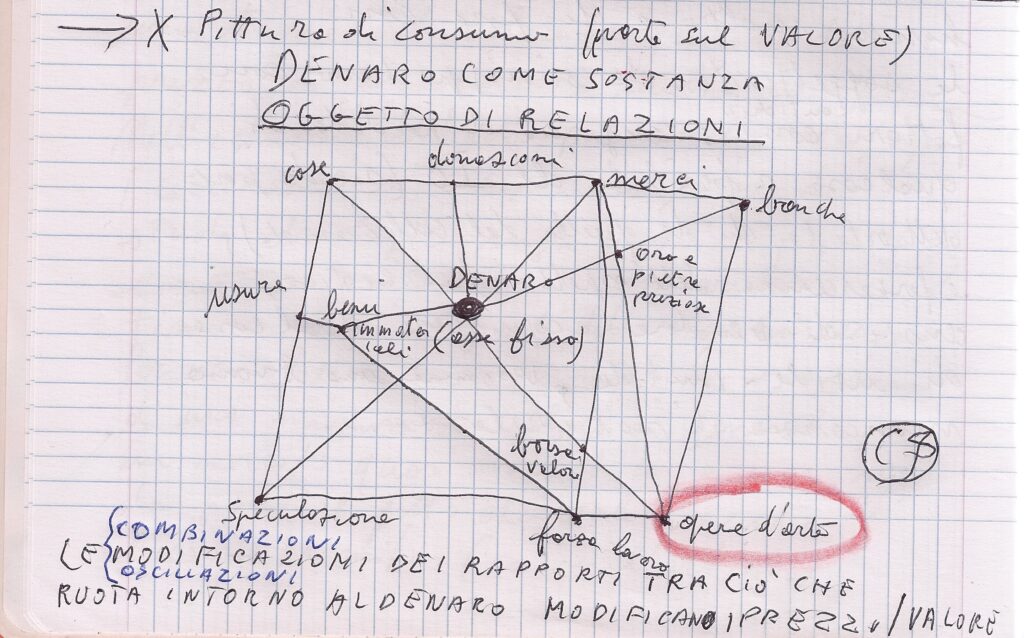 → X Pittura di consumo (parte sul VALORE)
DENARO COME SOSTANZA
OGGETTO DI RELAZIONI
cose
merci
banche
oro e
pietre
preziose
DENARO
(asse fisso)
usura
beni
immate
riali
borsa
valori
speculazione
forza lavoro
opere d'arte
COMBINAZIONI
LE MODIFICAZIONI DEI RAPPORTI TRA CIÒ CHE
OSCILLAZIONI
RUOTA INTORNO AL DENARO MODIFICANO I PREZZI/VALORE